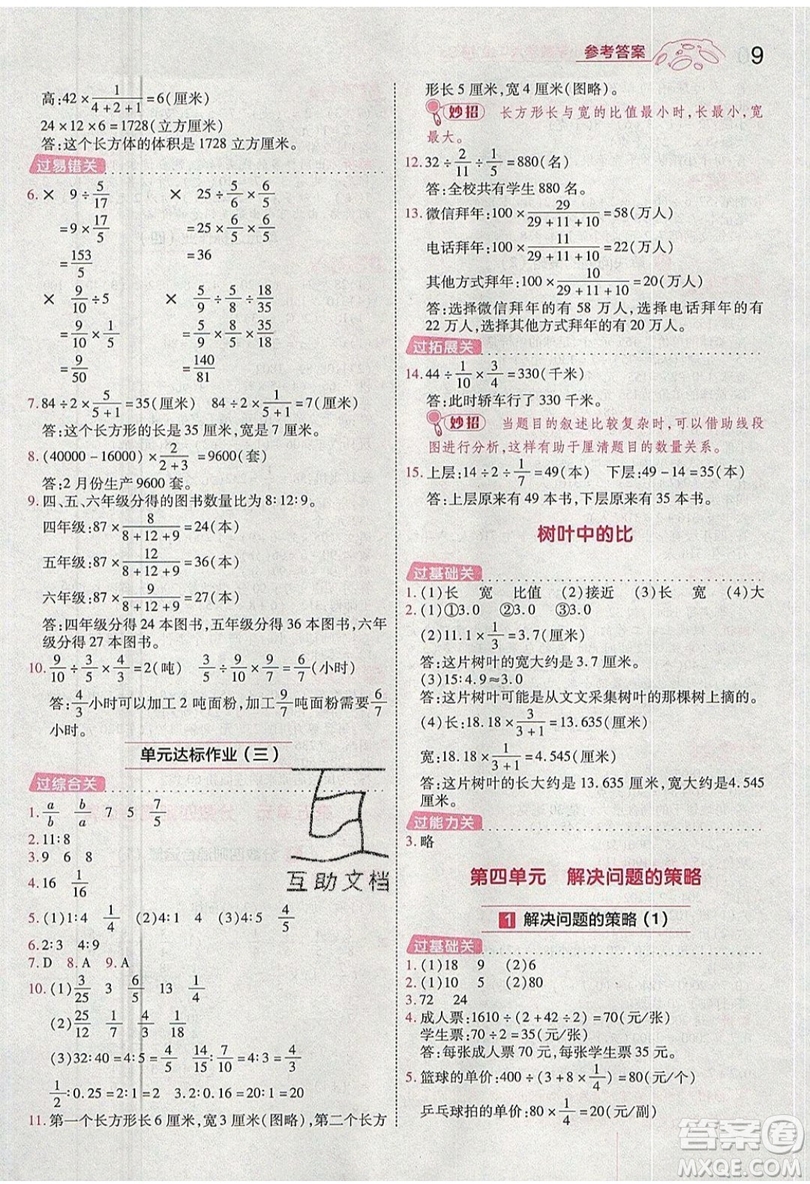 参考答案 9
高:42×1/(4+2+1)=6(厘米)
24×12×6=1728(立方厘米)
答:这个长方体的体积是 1728 立方厘米。
过易错关
6. × 9÷5/17 × 25÷5/6×6/5
=9×17/5 =25×6/5×6/5
=153/5 =36
× 9/10÷5 × 5/18÷5/9÷18/35
=9/10×1/5
=9/50 =140/81
7. 84÷2×5/(5+1)=35(厘米) 84÷2×1/(5+1)=7(厘米)
答:这个长方形的长是 35 厘米,宽是 7 厘米。
8. (40000-16000)×2/(2+3)=9600(套)
答:2 月份生产 9600 套。
9. 四、五、六年级分得的图书数量比为 8∶12∶9。
四年级:87×8/(8+12+9)=24(本)
五年级:87×12/(8+12+9)=36(本)
六年级:87×9/(8+12+9)=27(本)
答:四年级分得 24 本图书,五年级分得 36 本图书,六年级分得 27 本图书。
10. 9/10÷9/5×4/3=2(吨) 9/5÷9/10×3/7=6/7(小时)
答:4/3小时可以加工 2 吨面粉,加工9/7吨面粉需要6/7小时。
单元达标作业(三)
过综合关
1. a/b b/a 7 5 7/5
2. 11∶8
3. 9 6 8
4. 16 1/16
5. (1)1∶4 1/4 (2)4∶1 4 (3)4∶5 4/5
6. 2∶3 4∶9
7. D 8. A 9. A
10. (1)3/25 3 6/5 13 5/6
(2)25/12 1/7 1/18
(3)32∶40=4∶5=4/5
1/2∶0.25=2∶1=2 3.2∶0.24=40∶3=40/3
11. 第一个长方形长 6 厘米,宽 3 厘米(图略),第二个长方
形长 5 厘米,宽 4 厘米(图略)。
妙招 长方形长与宽的比值最小时,长最小,宽
最大。
12. 32÷2/11÷1/5=880(名)
答:全校共有学生 880 名。
13. 微信拜年:100×29/(29+11+10)=58(万人)
电话拜年:100×11/(29+11+10)=22(万人)
其他方式拜年:100×10/(29+11+10)=20(万人)
答:选择微信拜年的有 58 万人,选择电话拜年的有
22 万人,选择其他方式拜年的有 20 万人。
过拓展关
14. 44÷1/10×3/4=330(千米)
答:此时轿车行了 330 千米。
妙招 当题目的叙述比较复杂时,可以借助线段
图进行分析,这样有助于厘清题目的数量关系。
15. 上层:14÷2÷1/7=49(本) 下层:49-14=35(本)
答:上层原来有 49 本书,下层原来有 35 本书。
树叶中的比
过基础关
1. (1)长 宽 比值 (2)接近 (3)长 宽 (4)大
2. (1)①3.0 ②3.0 ③3.0
(2)11.1×1/3=3.7(厘米)
答:这片树叶的宽大约是 3.7 厘米。
(3)15∶4.9≈3.0
答:这片树叶可能是从文文采集树叶的那棵树上摘的。
(4)长:18.18×3/(3+1)=13.635(厘米)
宽:18.18×1/(3+1)=4.545(厘米)
答:这片树叶的长大约是 13.635 厘米,宽大约是4.545
厘米。
过能力关
3. 略
第四单元 解决问题的策略
1 解决问题的策略(1)
过基础关
1. (1)18 9 (2)6
2. (1)10 5 (2)80
3. 72 24
4. 成人票:1610÷(2+42÷2)=70(元/张)
学生票:70÷2=35(元/张)
答:每张成人票 70 元,每张学生票 35 元。
5. 篮球的单价:400÷(3+8×1/4)=80(元/个)
乒乓球拍的单价:80×1/4=20(元/副)
互助文档
答案圈
MXQE.COM